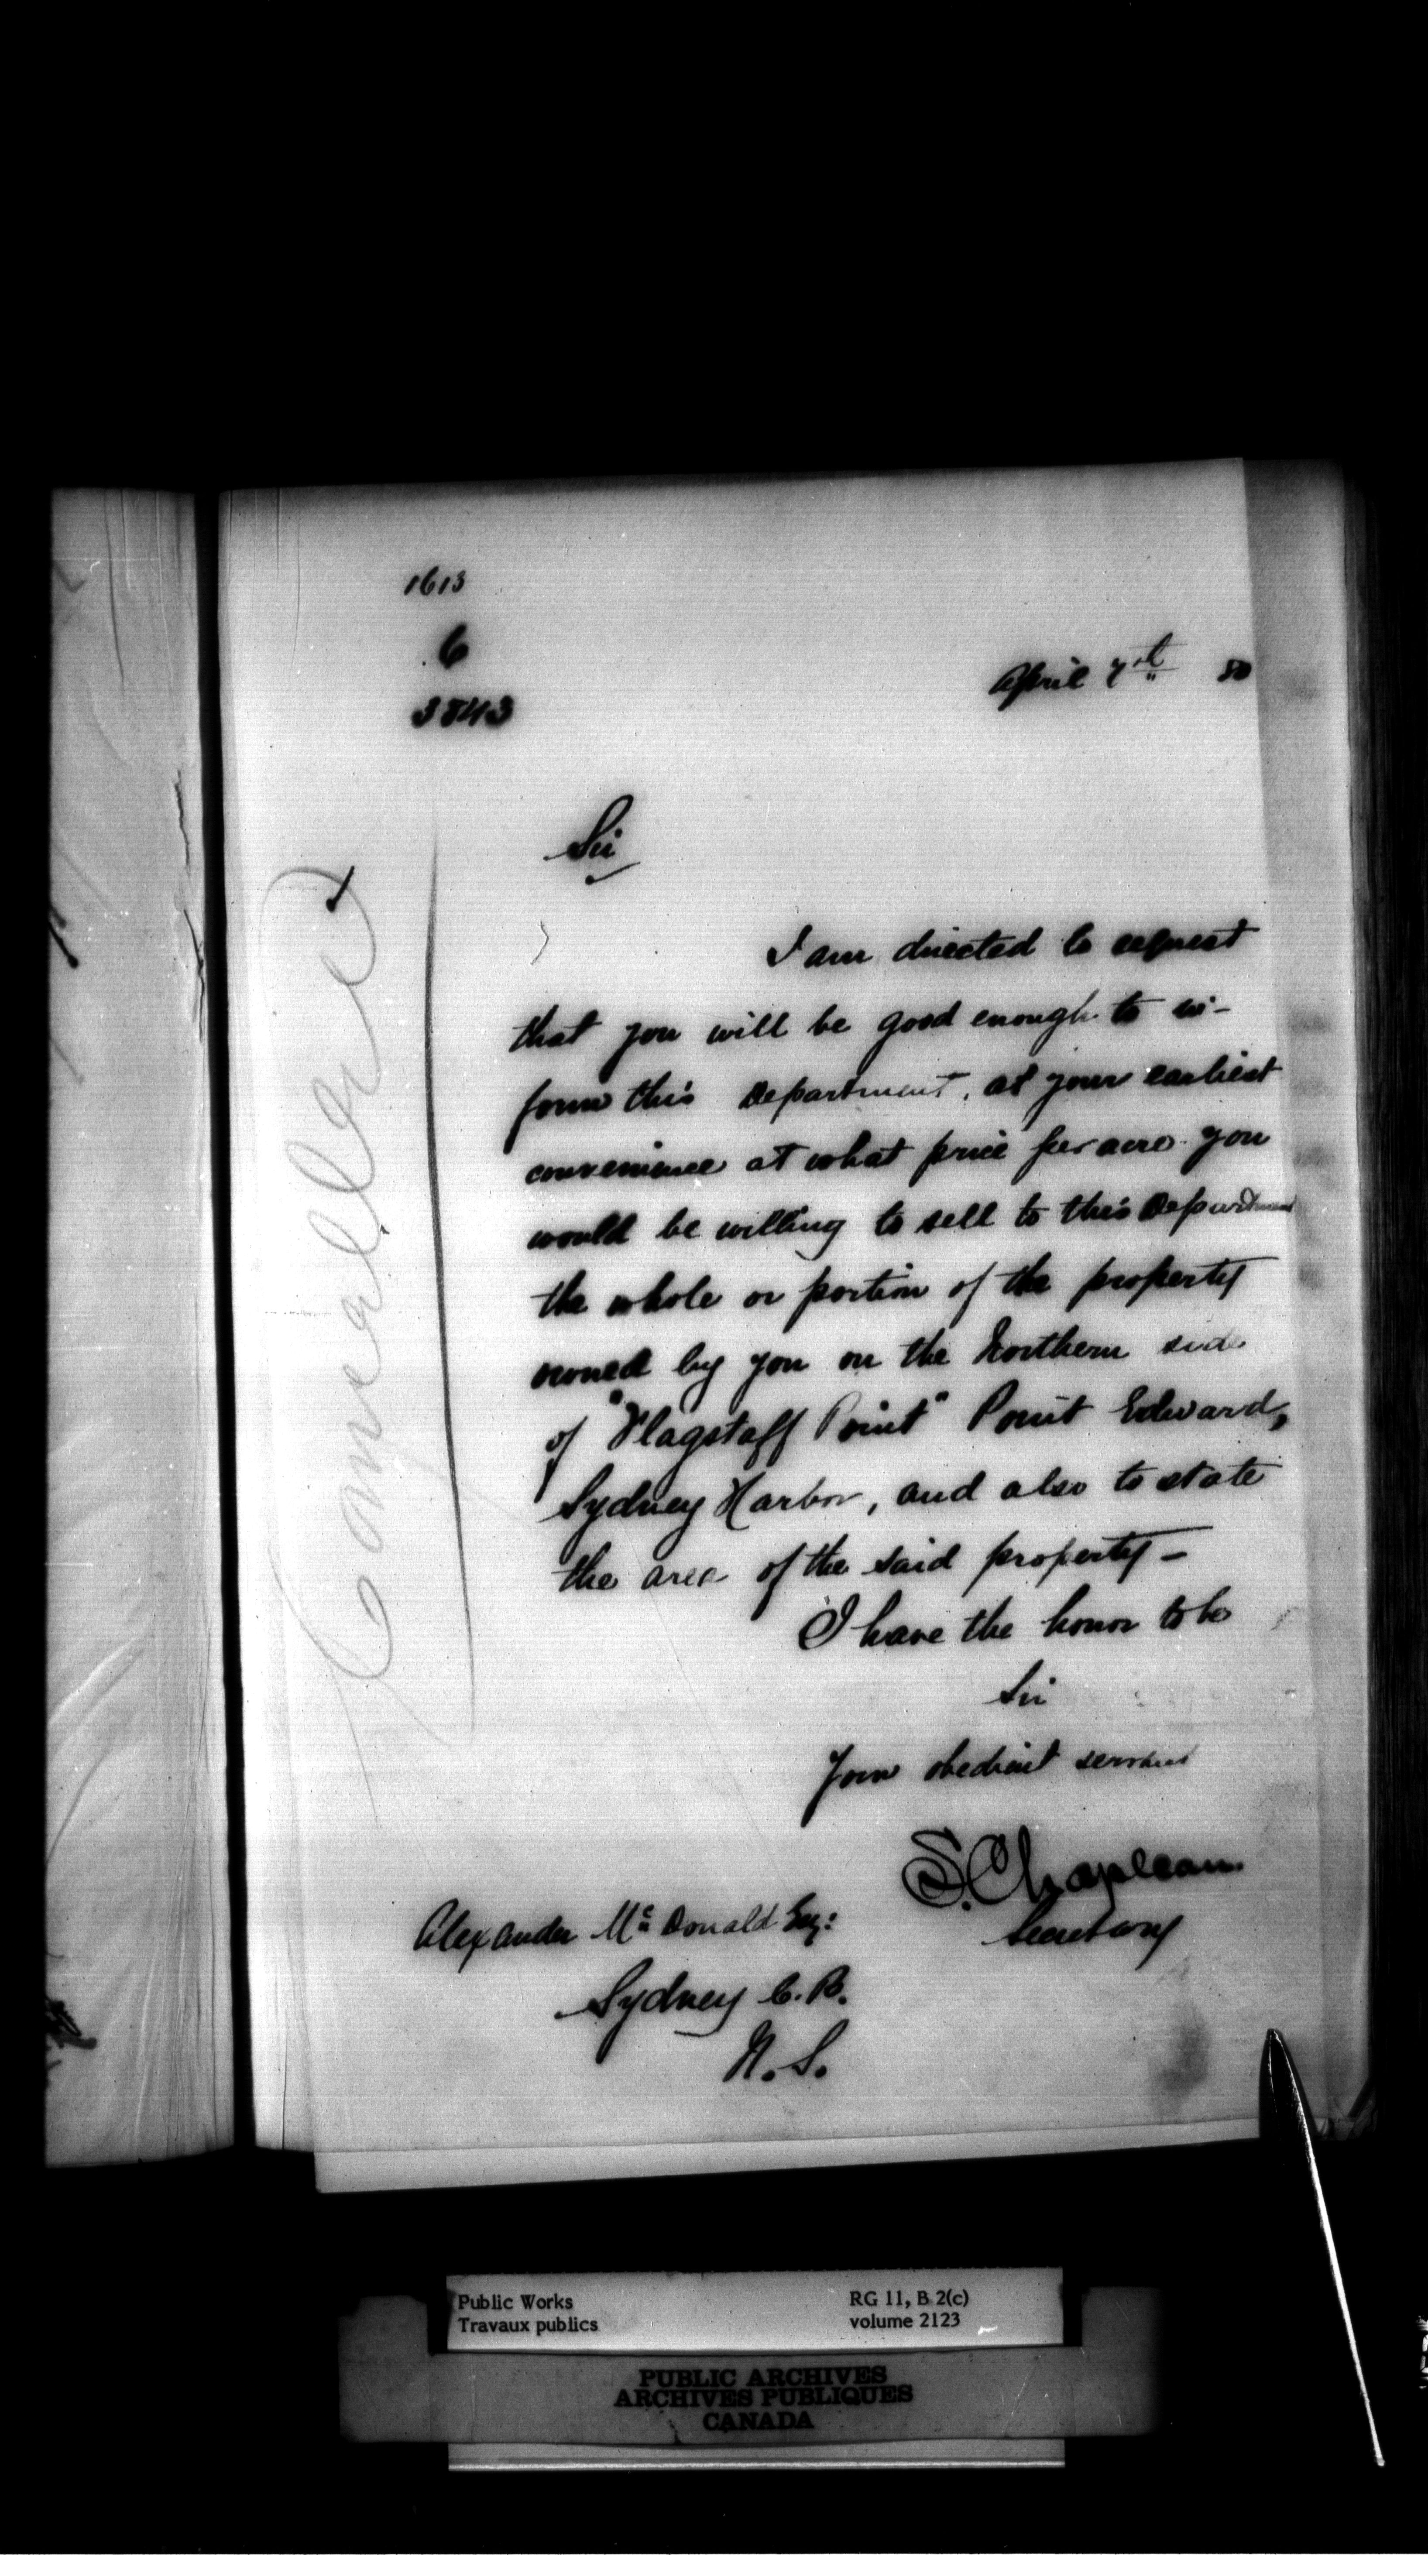 1613
6
3843
April 7th 80
Cancelled
Sir
I am directed to request
that you will be good enough to in-
form this Department, at your earliest
convenience at what price per acre you
would be willing to sell to this Department
the whole or portion of the property
owned by you on the Northern side
of "Flagstaff Point" Point Edward,
Sydney Harbor, and also to state
the area of the said property -
I have the honor to be
Sir
Your obedient servant
S. Chapleau
Secretary
Alexander Mc Donald Esq:
Sydney C. B.
N. S.
Public Works RG 11, B 2(c)
Travaux publics volume 2123
PUBLIC ARCHIVES
ARCHIVES PUBLIQUES
CANADA